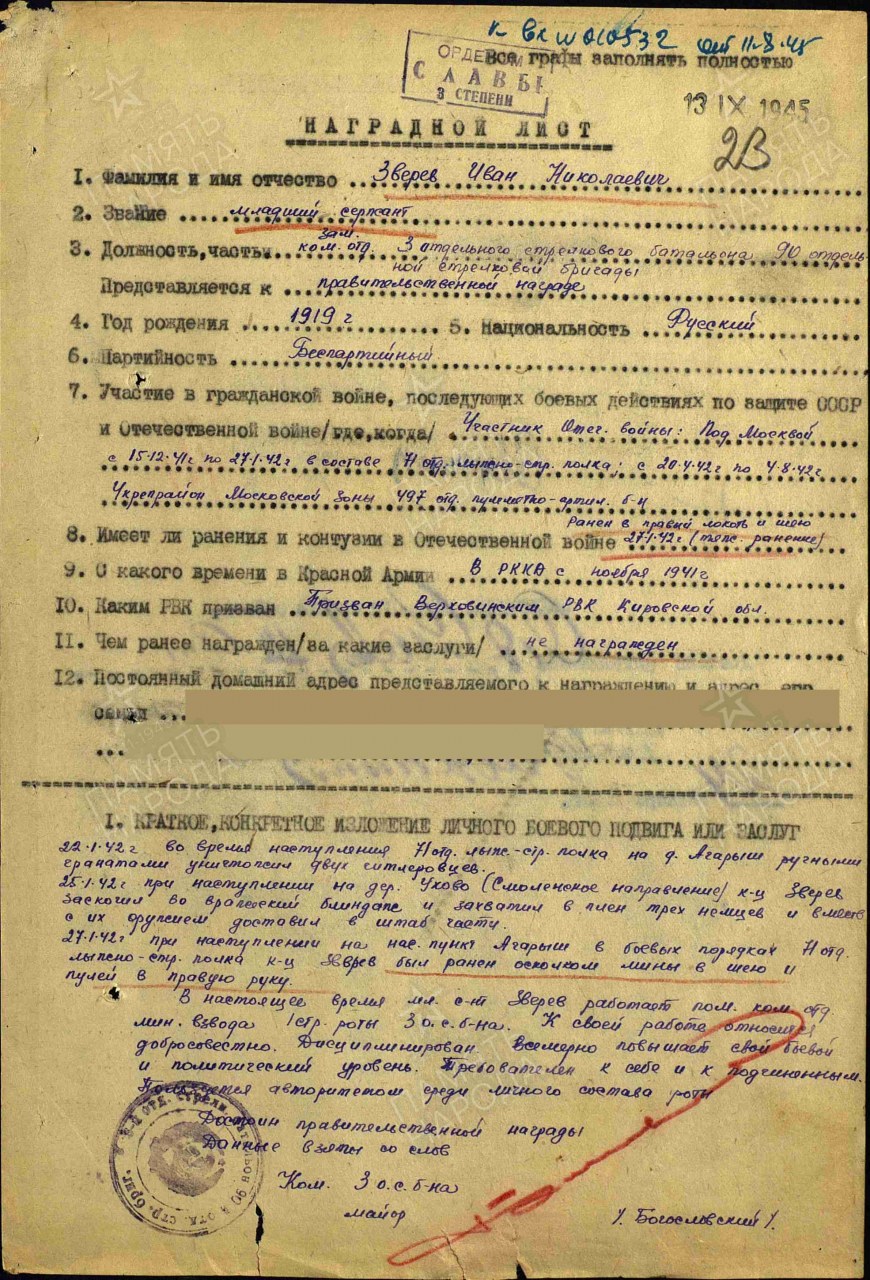 к вх № 010532 от 11-8-45
ОРДЕНОМ
СЛАВЫ
3 СТЕПЕНИ
Все графы заполнять полностью
13 IX 1945
НАГРАДНОЙ ЛИСТ
23
1. Фамилия и имя отчество Зверев Иван Николаевич
2. Звание младший сержант
зам.
3. Должность, часть ком. отд. 3 отдельного стрелкового батальона 90 отдель-
ной стрелковой бригады
Представляется к правительственной награде
4. Год рождения 1919 г 5. Национальность Русский
6. Партийность Беспартийный
7. Участие в гражданской войне, последующих боевых действиях по защите СССР
и Отечественной войне/где,когда/ Участник Отеч. войны: Под Москвой
с 15-12-41г по 27-1-42г в составе 71 отд. лыжно-стр. полка; с 20-4-42г по 4-8-42г
Укрепрайон Московской зоны 497 отд. пулеметно-артил. б-н
Ранен в правый локоть и шею
8. Имеет ли ранения и контузии в Отечественной войне 27-1-42г (тяж. ранение)
9. С какого времени в Красной Армии В РККА с ноября 1941г
10. Каким РВК призван Призван Верховинским РВК Кировской обл.
11. Чем ранее награжден/за какие заслуги/ не награжден
12. Постоянный домашний адрес представляемого к награждению и адрес его
семьи
I. КРАТКОЕ,КОНКРЕТНОЕ ИЗЛОЖЕНИЕ ЛИЧНОГО БОЕВОГО ПОДВИГА ИЛИ ЗАСЛУГ
22-1-42г во время наступления 71 отд. лыж-стр. полка на д. Агарыш ручными
гранатами уничтожил двух гитлеровцев.
25-1-42г при наступлении на дер. Ухово (Смоленское направление) к-ц Зверев
заскочил во вражеский блиндаж и захватил в плен трех немцев и вместе
с их оружием доставил в штаб части.
27-1-42г при наступлении на нас. пункт Агарыш в боевых порядках 71 отд.
лыжно-стр. полка к-ц Зверев был ранен осколком мины в шею и
пулей в правую руку.
В настоящее время мл. с-нт Зверев работает пом. ком. отд.
мин. взвода 1 стр. роты 3 о.с.б-на. К своей работе относится
добросовестно. Дисциплинирован. Всемерно повышает свой боевой
и политический уровень. Требователен к себе и к подчиненным.
Пользуется авторитетом среди личного состава роты
Достоин правительственной награды
Данные взяты со слов
Ком. 3 о.с. б-на
майор /. Богословский /.
ПАМЯТЬ НАРОДА